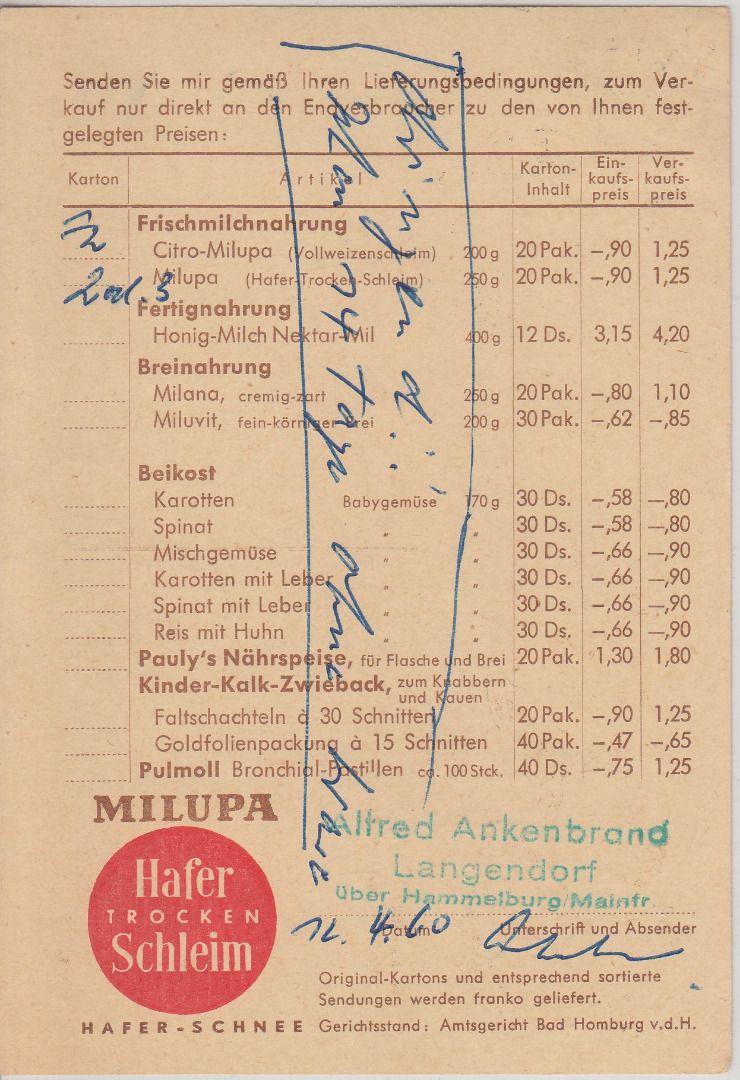 Senden Sie mir gemäß Ihren Lieferungsbedingungen, zum Ver-
kauf nur direkt an den Endverbraucher zu den von Ihnen fest-
gelegten Preisen:
Karton Artikel Karton-Inhalt Ein-kaufs-preis Ver-kaufs-preis
Frischmilchnahrung
Citro-Milupa (Vollweizenschleim) 200 g 20 Pak. –,90 1,25
2 od. 3 Milupa (Hafer-Trocken-Schleim) 250 g 20 Pak. –,90 1,25
Fertignahrung
Honig-Milch Nektar-Mil 400 g 12 Ds. 3,15 4,20
Breinahrung
Milana, cremig-zart 250 g 20 Pak. –,80 1,10
Miluvit, fein-körniger Brei 200 g 30 Pak. –,62 –,85
Beikost
Karotten Babygemüse 170 g 30 Ds. –,58 –,80
Spinat " " 30 Ds. –,58 –,80
Mischgemüse " " 30 Ds. –,66 –,90
Karotten mit Leber " " 30 Ds. –,66 –,90
Spinat mit Leber " " 30 Ds. –,66 –,90
Reis mit Huhn " " 30 Ds. –,66 –,90
Pauly's Nährspeise, für Flasche und Brei 20 Pak. 1,30 1,80
Kinder-Kalk-Zwieback, zum Knabbern
und Kauen
Faltschachteln à 30 Schnitten 20 Pak. –,90 1,25
Goldfolienpackung à 15 Schnitten 40 Pak. –,47 –,65
Pulmoll Bronchial-Pastillen ca. 100 Stck. 40 Ds. –,75 1,25
Dringend!
14 Tage ohne Ware
MILUPA
Hafer
TROCKEN
Schleim
HAFER-SCHNEE
Alfred Ankenbrand
Langendorf
über Hammelburg/Mainfr.
12. 4. 60
Datum Unterschrift und Absender
Original-Kartons und entsprechend sortierte
Sendungen werden franko geliefert.
Gerichtsstand: Amtsgericht Bad Homburg v.d.H.